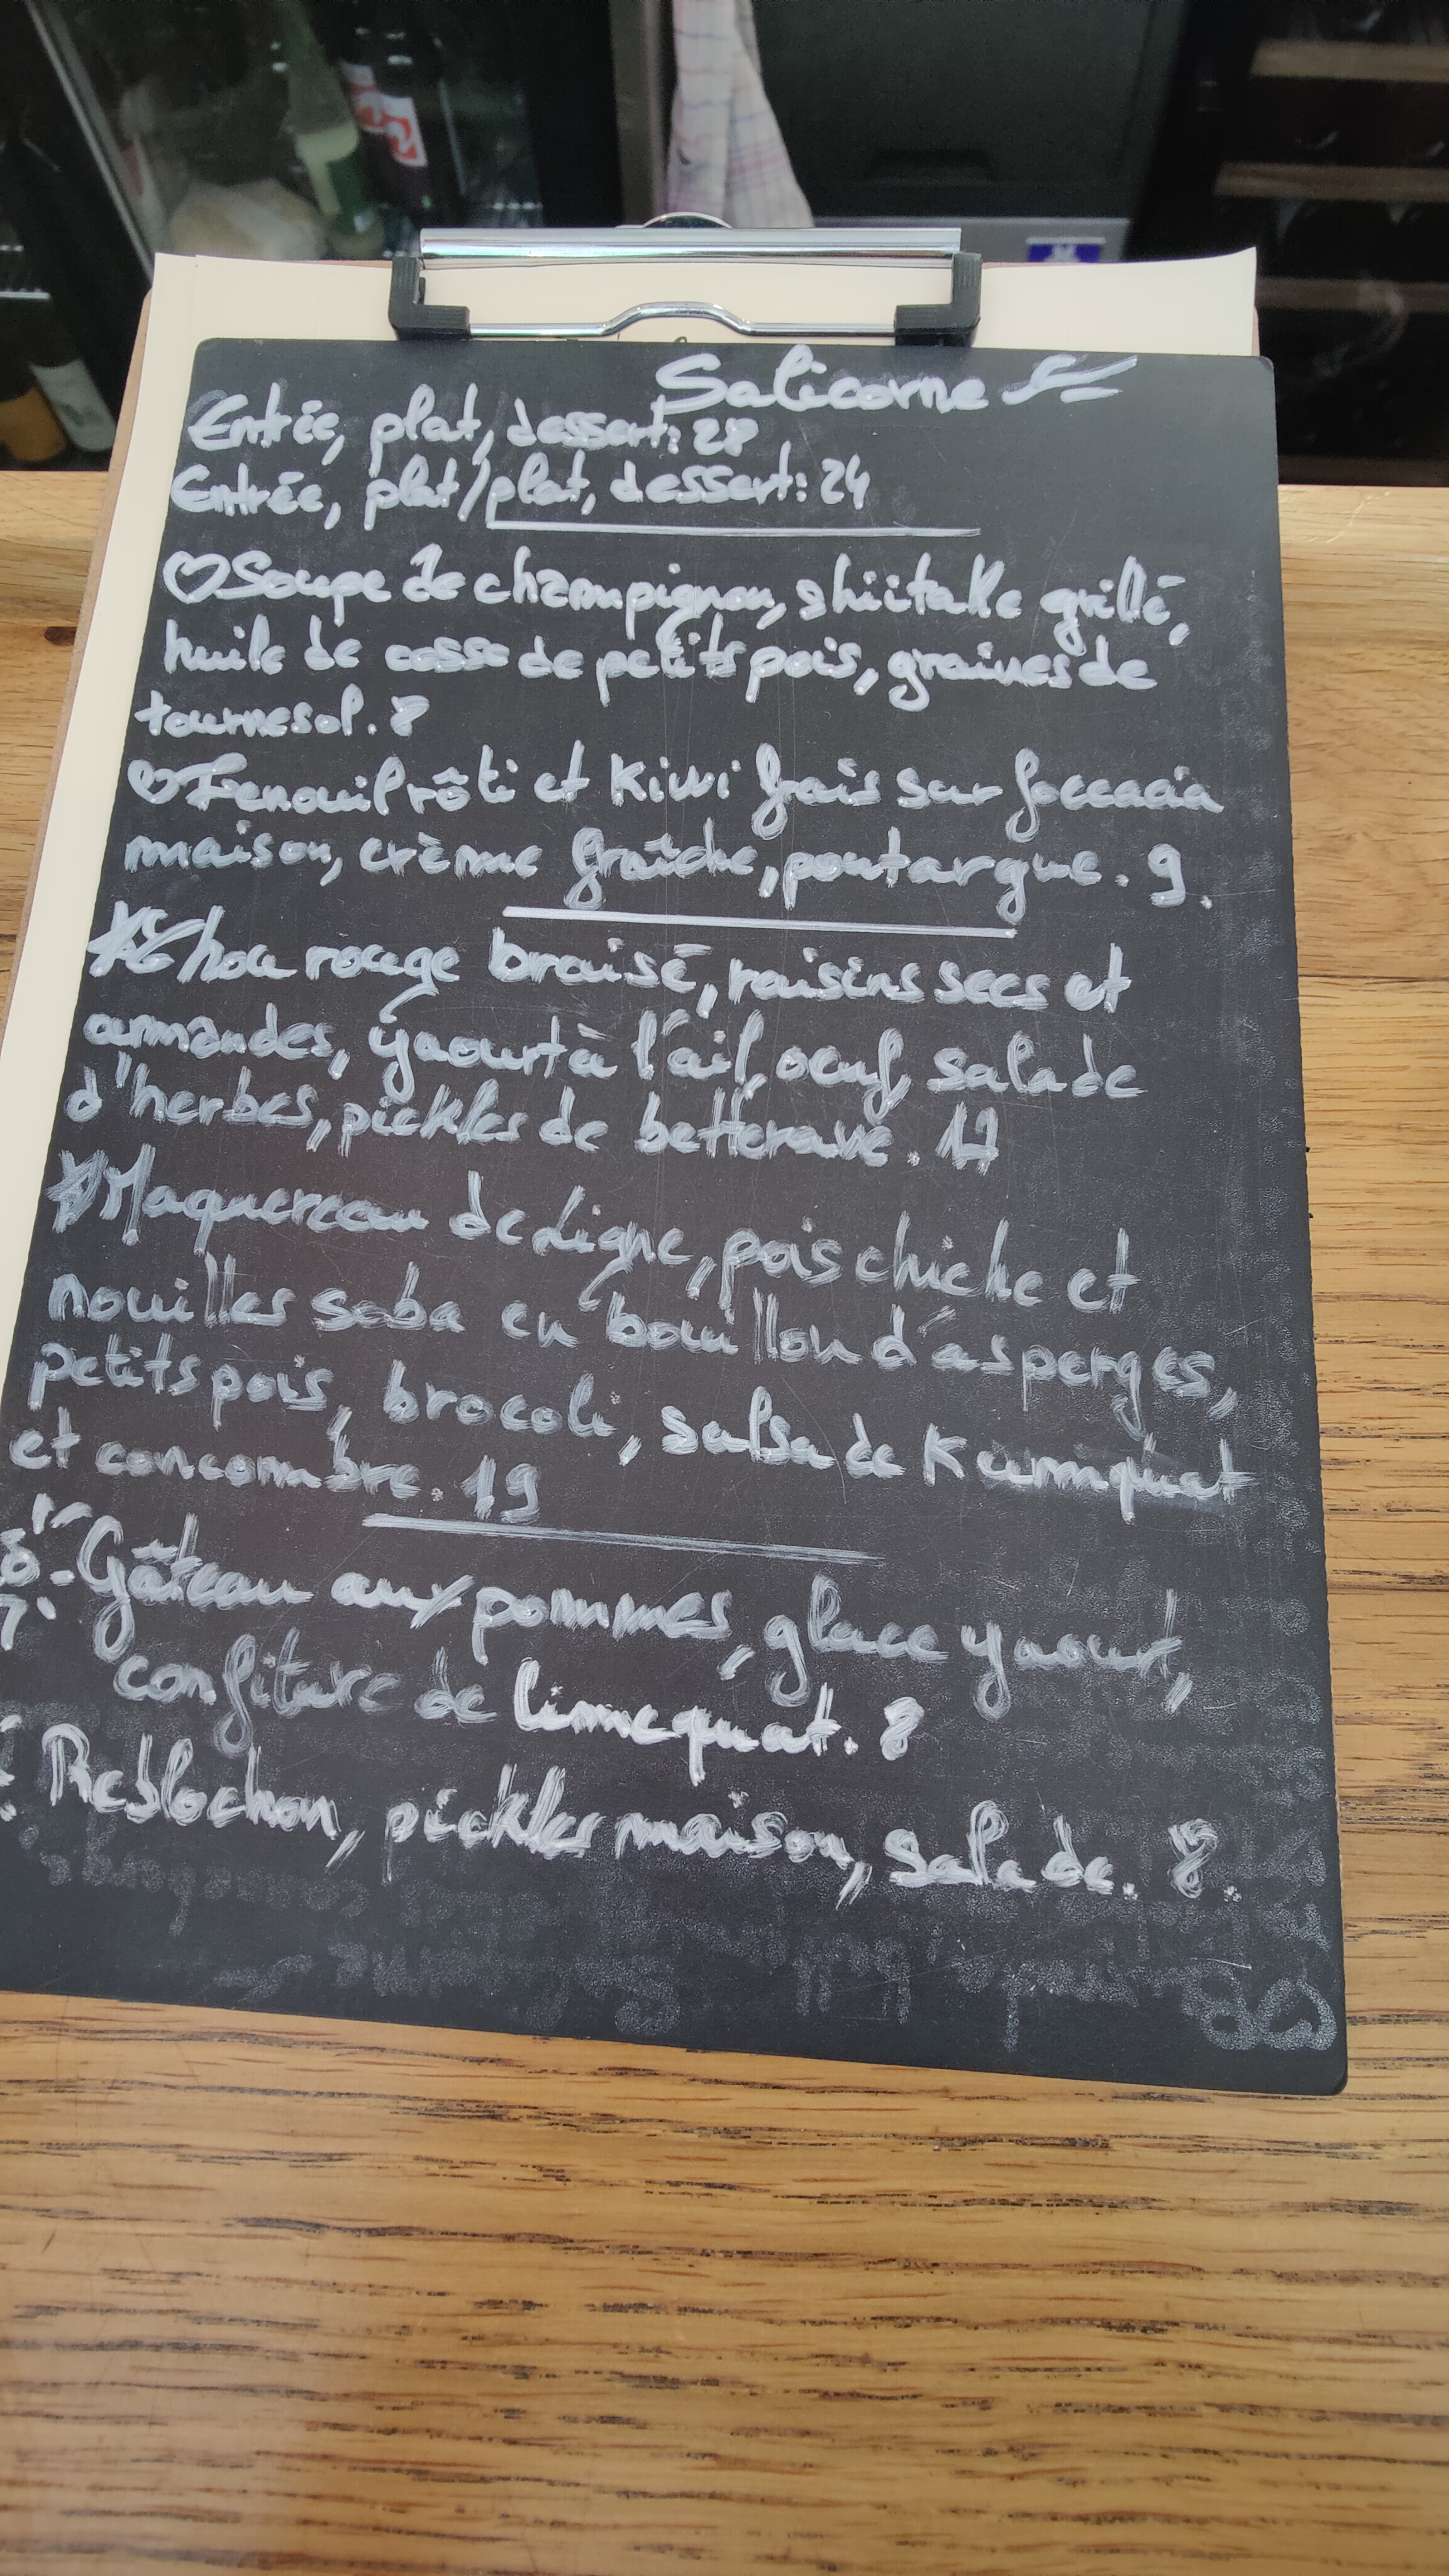 Salicorne
Entrée, plat, dessert: 28
Entrée, plat/plat, dessert: 24
Soupe de champignon, shiitake grillé,
huile de cosse de petits pois, graines de
tournesol. 8
Fenouil rôti et kiwi frais sur foccacia
maison, crème fraîche, poutargue. 9.
Chou rouge braisé, raisins secs et
amandes, yaourt à l'ail, oeuf, salade
d'herbes, pickles de betterave. 17
Maquereau de ligne, pois chiche et
nouilles soba en bouillon d'asperges,
petits pois, brocoli, salsa de kumquat
et concombre. 19
Gâteau aux pommes, glace yaourt,
confiture de limequat. 8
Reblochon, pickles maison, salade. 8.